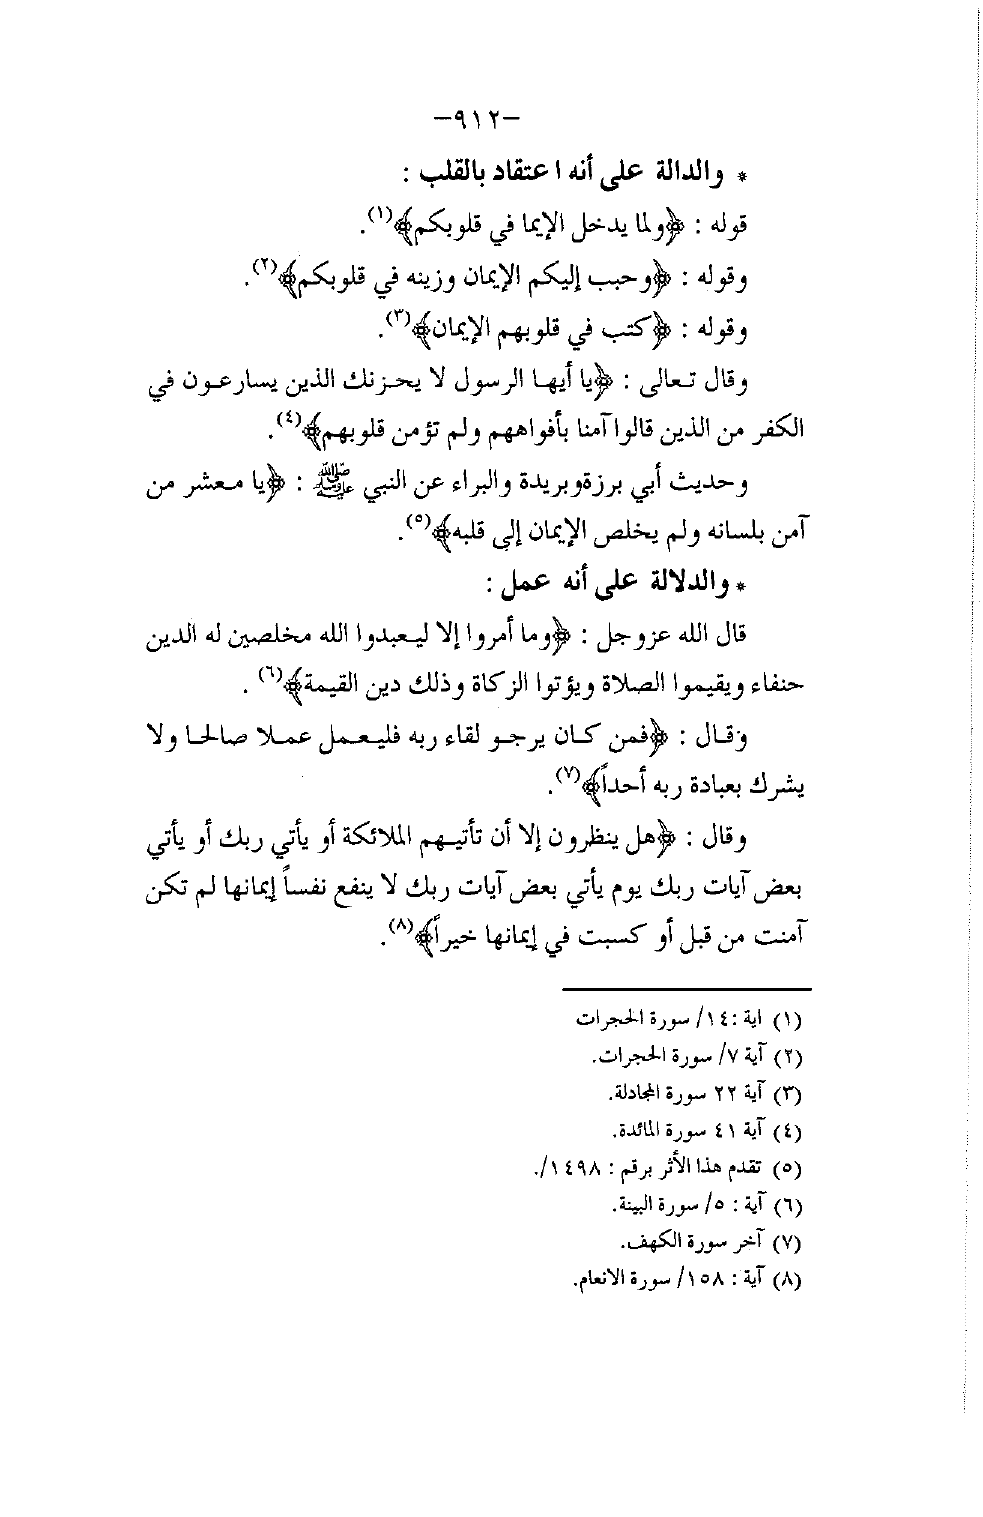 -٩١٢-
* والدالة على أنه اعتقاد بالقلب :
قوله : ﴿ولما يدخل الإيما في قلوبكم﴾(١).
وقوله : ﴿وحبب إليكم الإيمان وزينه في قلوبكم﴾(٢).
وقوله : ﴿كتب في قلوبهم الإيمان﴾(٣).
وقال تعالى : ﴿يا أيها الرسول لا يحزنك الذين يسارعون في
الكفر من الذين قالوا آمنا بأفواههم ولم تؤمن قلوبهم﴾(٤).
وحديث أبي برزةوبريدة والبراء عن النبي ﷺ : ﴿يا معشر من
آمن بلسانه ولم يخلص الإيمان إلى قلبه﴾(٥).
* والدلالة على أنه عمل :
قال الله عزوجل : ﴿وما أمروا إلا ليعبدوا الله مخلصين له الدين
حنفاء ويقيموا الصلاة ويؤتوا الزكاة وذلك دين القيمة﴾(٦) .
وقال : ﴿فمن كان يرجو لقاء ربه فليعمل عملا صالحا ولا
يشرك بعبادة ربه أحداً﴾(٧).
وقال : ﴿هل ينظرون إلا أن تأتيهم الملائكة أو يأتي ربك أو يأتي
بعض آيات ربك يوم يأتي بعض آيات ربك لا ينفع نفساً إيمانها لم تكن
آمنت من قبل أو كسبت في إيمانها خيراً﴾(٨).
(١) اية :١٤/ سورة الحجرات
(٢) آية ٧/ سورة الحجرات.
(٣) آية ٢٢ سورة المجادلة.
(٤) آية ٤١ سورة المائدة.
(٥) تقدم هذا الأثر برقم : ١٤٩٨/.
(٦) آية : ٥/ سورة البينة.
(٧) آخر سورة الكهف.
(٨) آية : ١٥٨/ سورة الانعام.